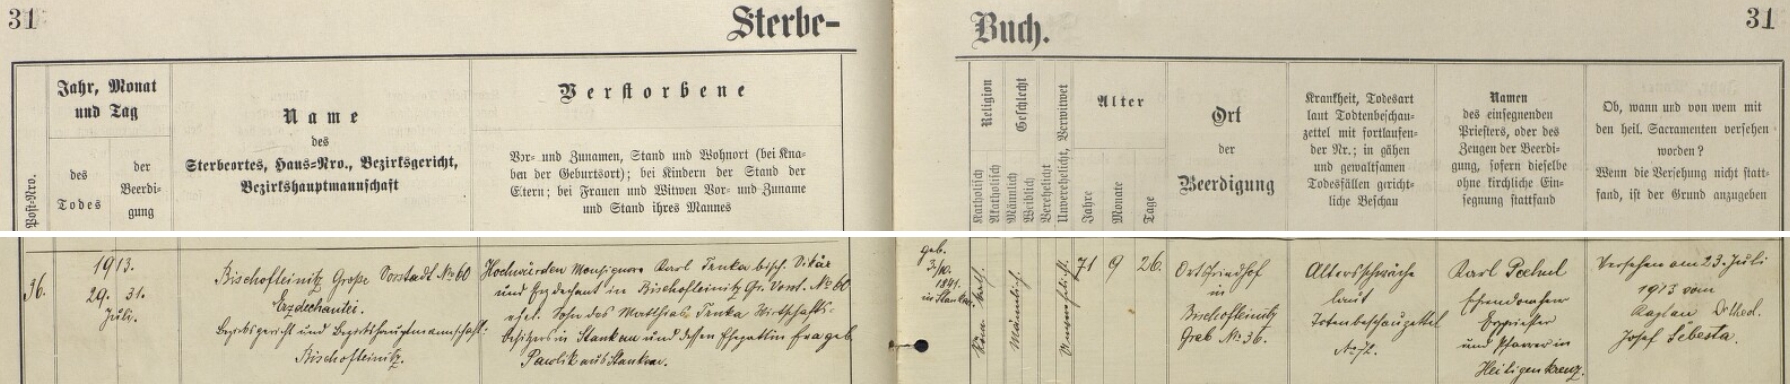 31
Sterbe-
Buch.
31
Post-Nro.
Jahr, Monat
und Tag
des
Todes
der
Beerdi-
gung
Name
des
Sterbeortes, Haus-Nro., Bezirksgericht,
Bezirkshauptmannschaft
Verstorbene
Vor- und Zunamen, Stand und Wohnort (bei Kna-
ben der Geburtsort); bei Kindern der Stand der
Eltern; bei Frauen und Witwen Vor- und Zuname
und Stand ihres Mannes
Religion
Katholisch
Akatholisch
Geschlecht
Männlich
Weiblich
Verehelicht
Unverehelicht, Verwitwet
Alter
Jahre
Monate
Tage
Ort
der
Beerdigung
Krankheit, Todesart
laut Todtenbeschau-
zettel mit fortlaufen-
der Nr.; in gähen
und gewaltsamen
Todesfällen gericht-
liche Beschau
Namen
des einsegnenden
Priesters, oder des
Zeugen der Beerdi-
gung, sofern dieselbe
ohne kirchliche Ein-
segnung stattfand
Ob, wann und von wem mit
den heil. Sacramenten versehen
worden?
Wenn die Versehung nicht statt-
fand, ist der Grund anzugeben
36.
1913.
29. 31.
Juli.
Bischofteinitz Große Vorstadt No 60
Erzdechantei.
Bezirksgericht und Bezirkshauptmannschaft:
Bischofteinitz.
Hochwürden Monsignore Karl Trnka bisch. Vikär
und Erzdechant in Bischofteinitz Gr. Vorst. No 60
ehel. Sohn des Mathias Trnka Wirtschafts-
besitzers in Stankau und dessen Ehegattin Eva geb.
Pawlik aus Stankau.
geb.
3/10.
1841.
in Stankau.
Röm. kath.
Männlich.
Unverehelicht.
71
9
26.
Ortsfriedhof
in
Bischofteinitz
Grab No 36.
Altersschwäche
laut
Totenbeschauzettel
No 72.
Karl
Ehrendomherr
Erzpriester
und Pfarrer in
Heiligenkreuz.
Versehen am 23. Juli
1913 vom
Kaplan Dr. theol.
Josef Šebesta.